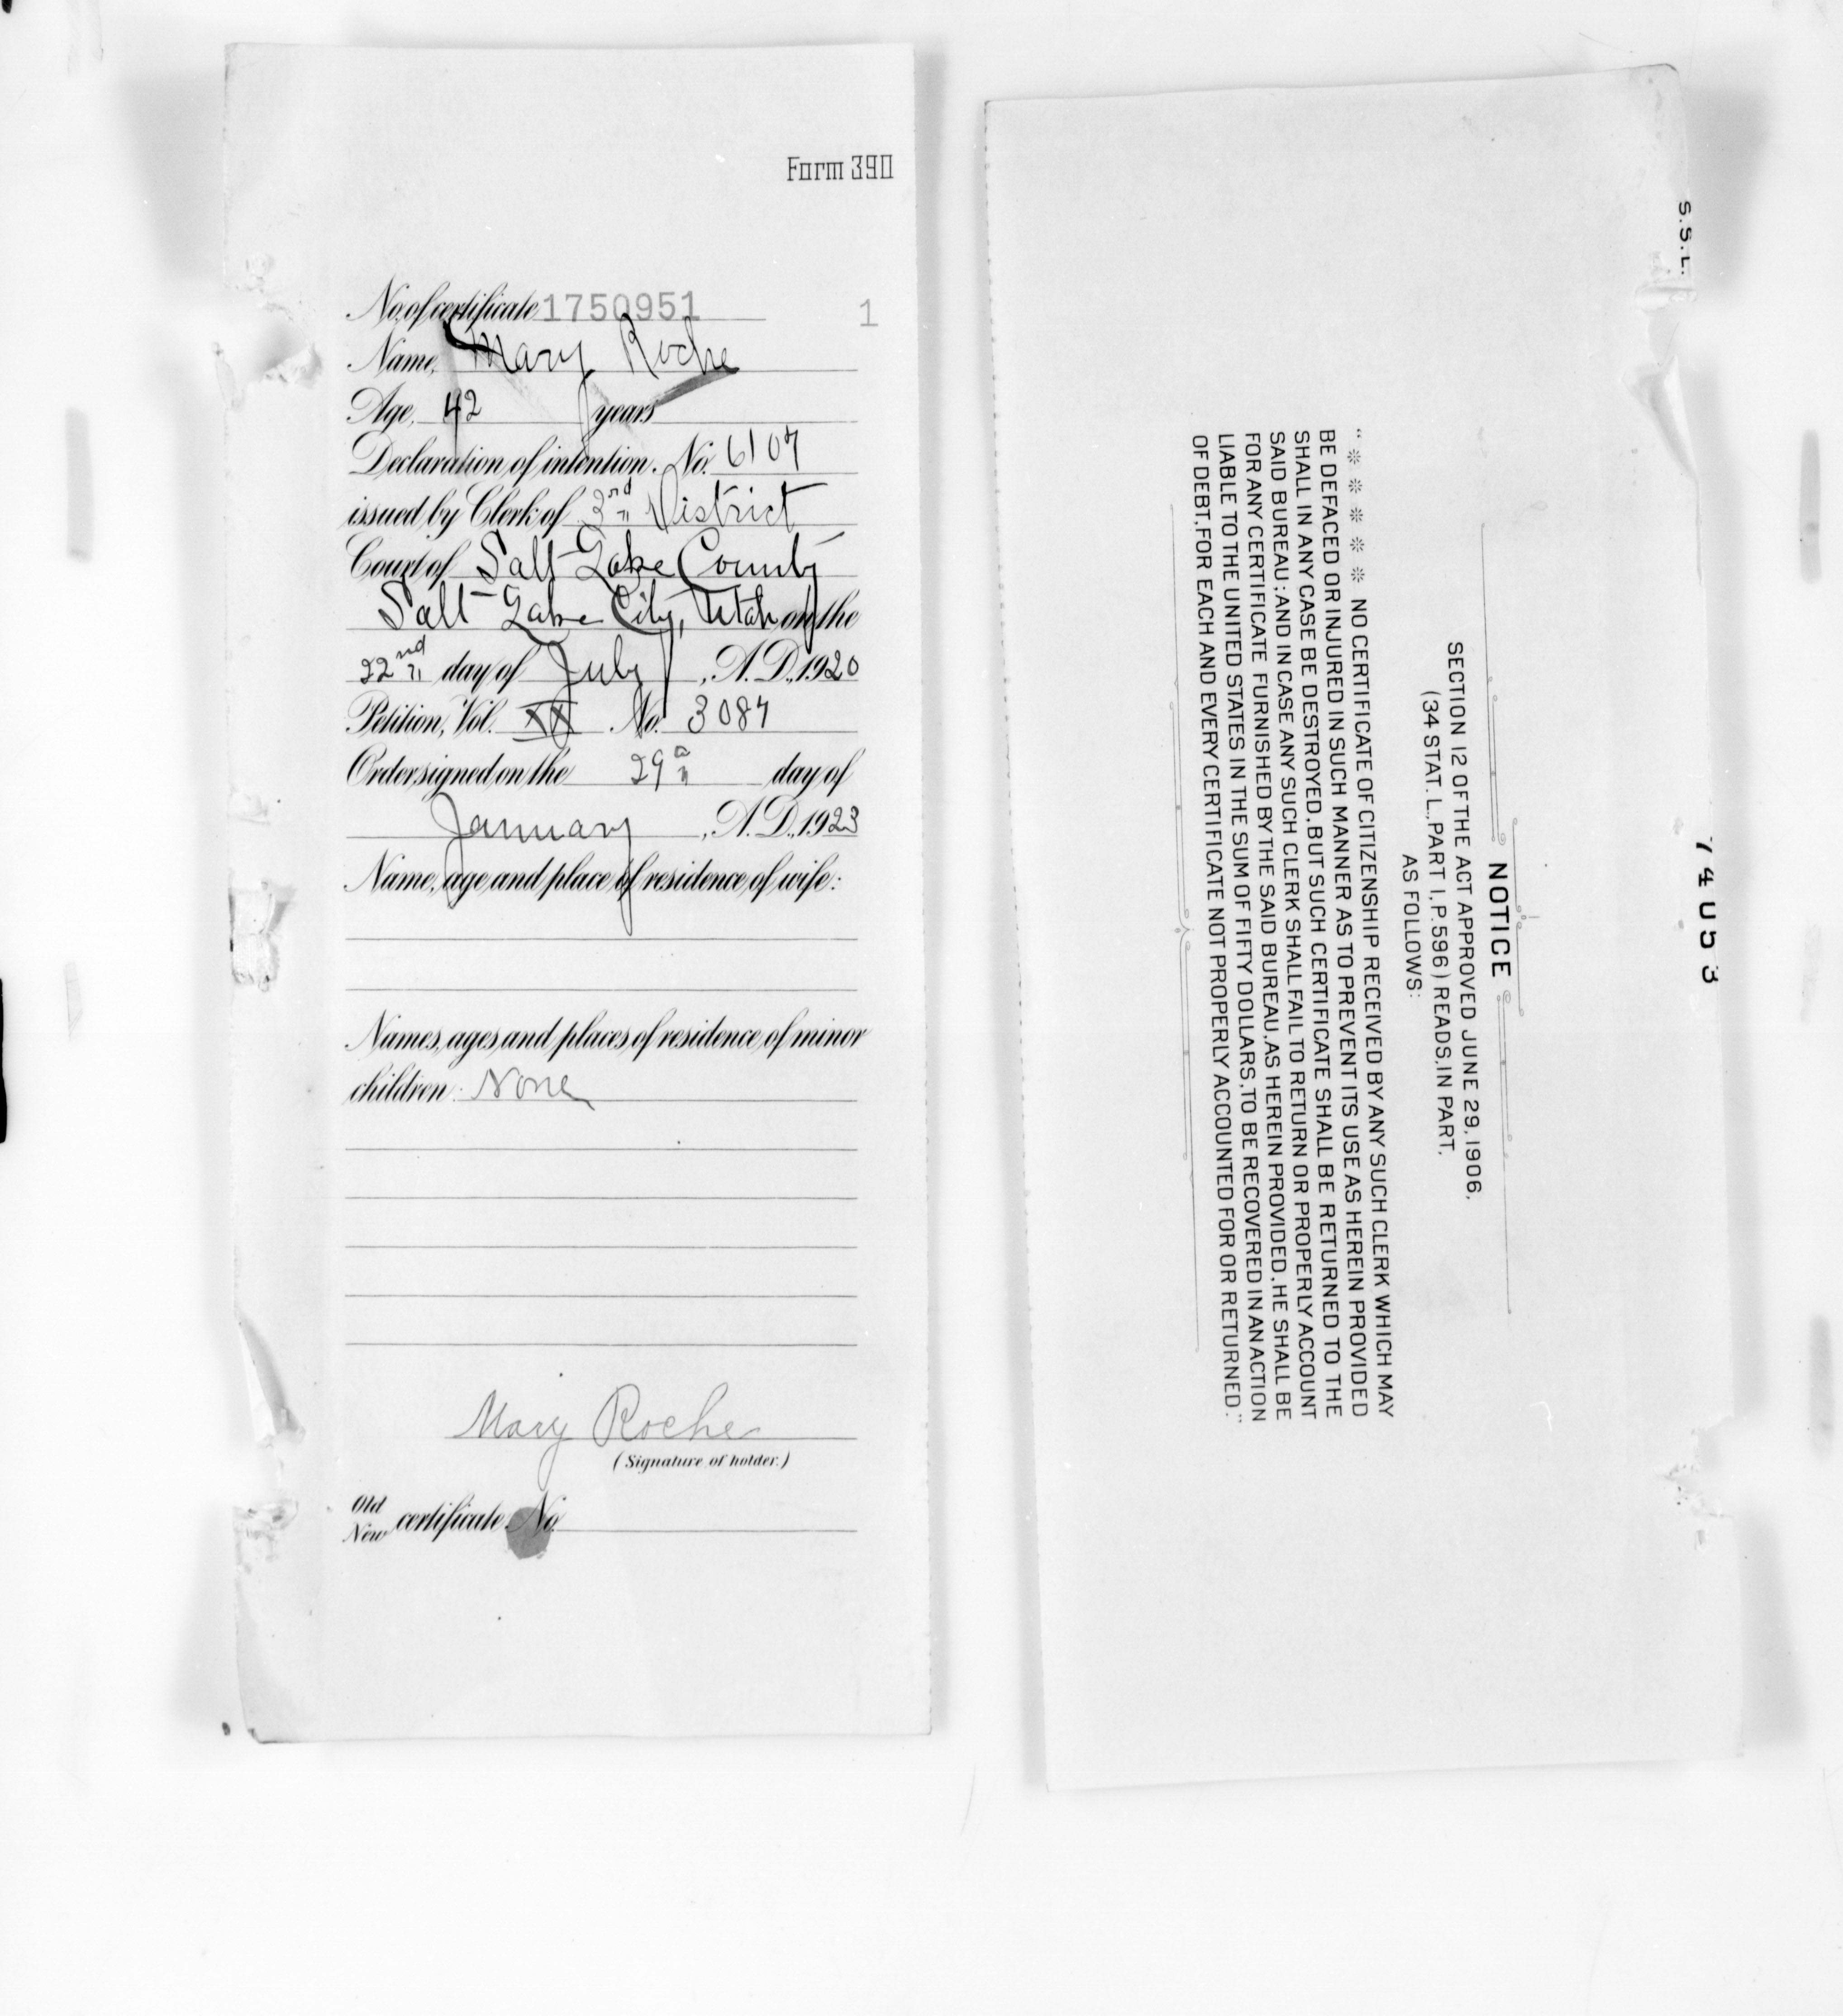 Form 390
No. of certificate 1750951 1
Name, Mary Roche
Age, 42 years
Declaration of intention, No. 6107
issued by Clerk of 3rd District
Court of Salt Lake County
Salt Lake City, Utah on the
22nd day of July, A.D., 1920
Petition, Vol. XX No. 3087
Order signed on the 29 day of
January, A.D., 1923
Name, age and place of residence of wife:
Names, ages and places of residence of minor
children: None
Mary Roche
(Signature of holder.)
Old
New certificate No.
S.S.L.
NOTICE
SECTION 12 OF THE ACT APPROVED JUNE 29, 1906,
(34 STAT. L., PART I, P. 596) READS, IN PART,
AS FOLLOWS:
"※ ※ ※ ※ ※ NO CERTIFICATE OF CITIZENSHIP RECEIVED BY ANY SUCH CLERK WHICH MAY
BE DEFACED OR INJURED IN SUCH MANNER AS TO PREVENT ITS USE AS HEREIN PROVIDED
SHALL IN ANY CASE BE DESTROYED, BUT SUCH CERTIFICATE SHALL BE RETURNED TO THE
SAID BUREAU; AND IN CASE ANY SUCH CLERK SHALL FAIL TO RETURN OR PROPERLY ACCOUNT
FOR ANY CERTIFICATE FURNISHED BY THE SAID BUREAU, AS HEREIN PROVIDED, HE SHALL BE
LIABLE TO THE UNITED STATES IN THE SUM OF FIFTY DOLLARS, TO BE RECOVERED IN AN ACTION
OF DEBT, FOR EACH AND EVERY CERTIFICATE NOT PROPERLY ACCOUNTED FOR OR RETURNED."